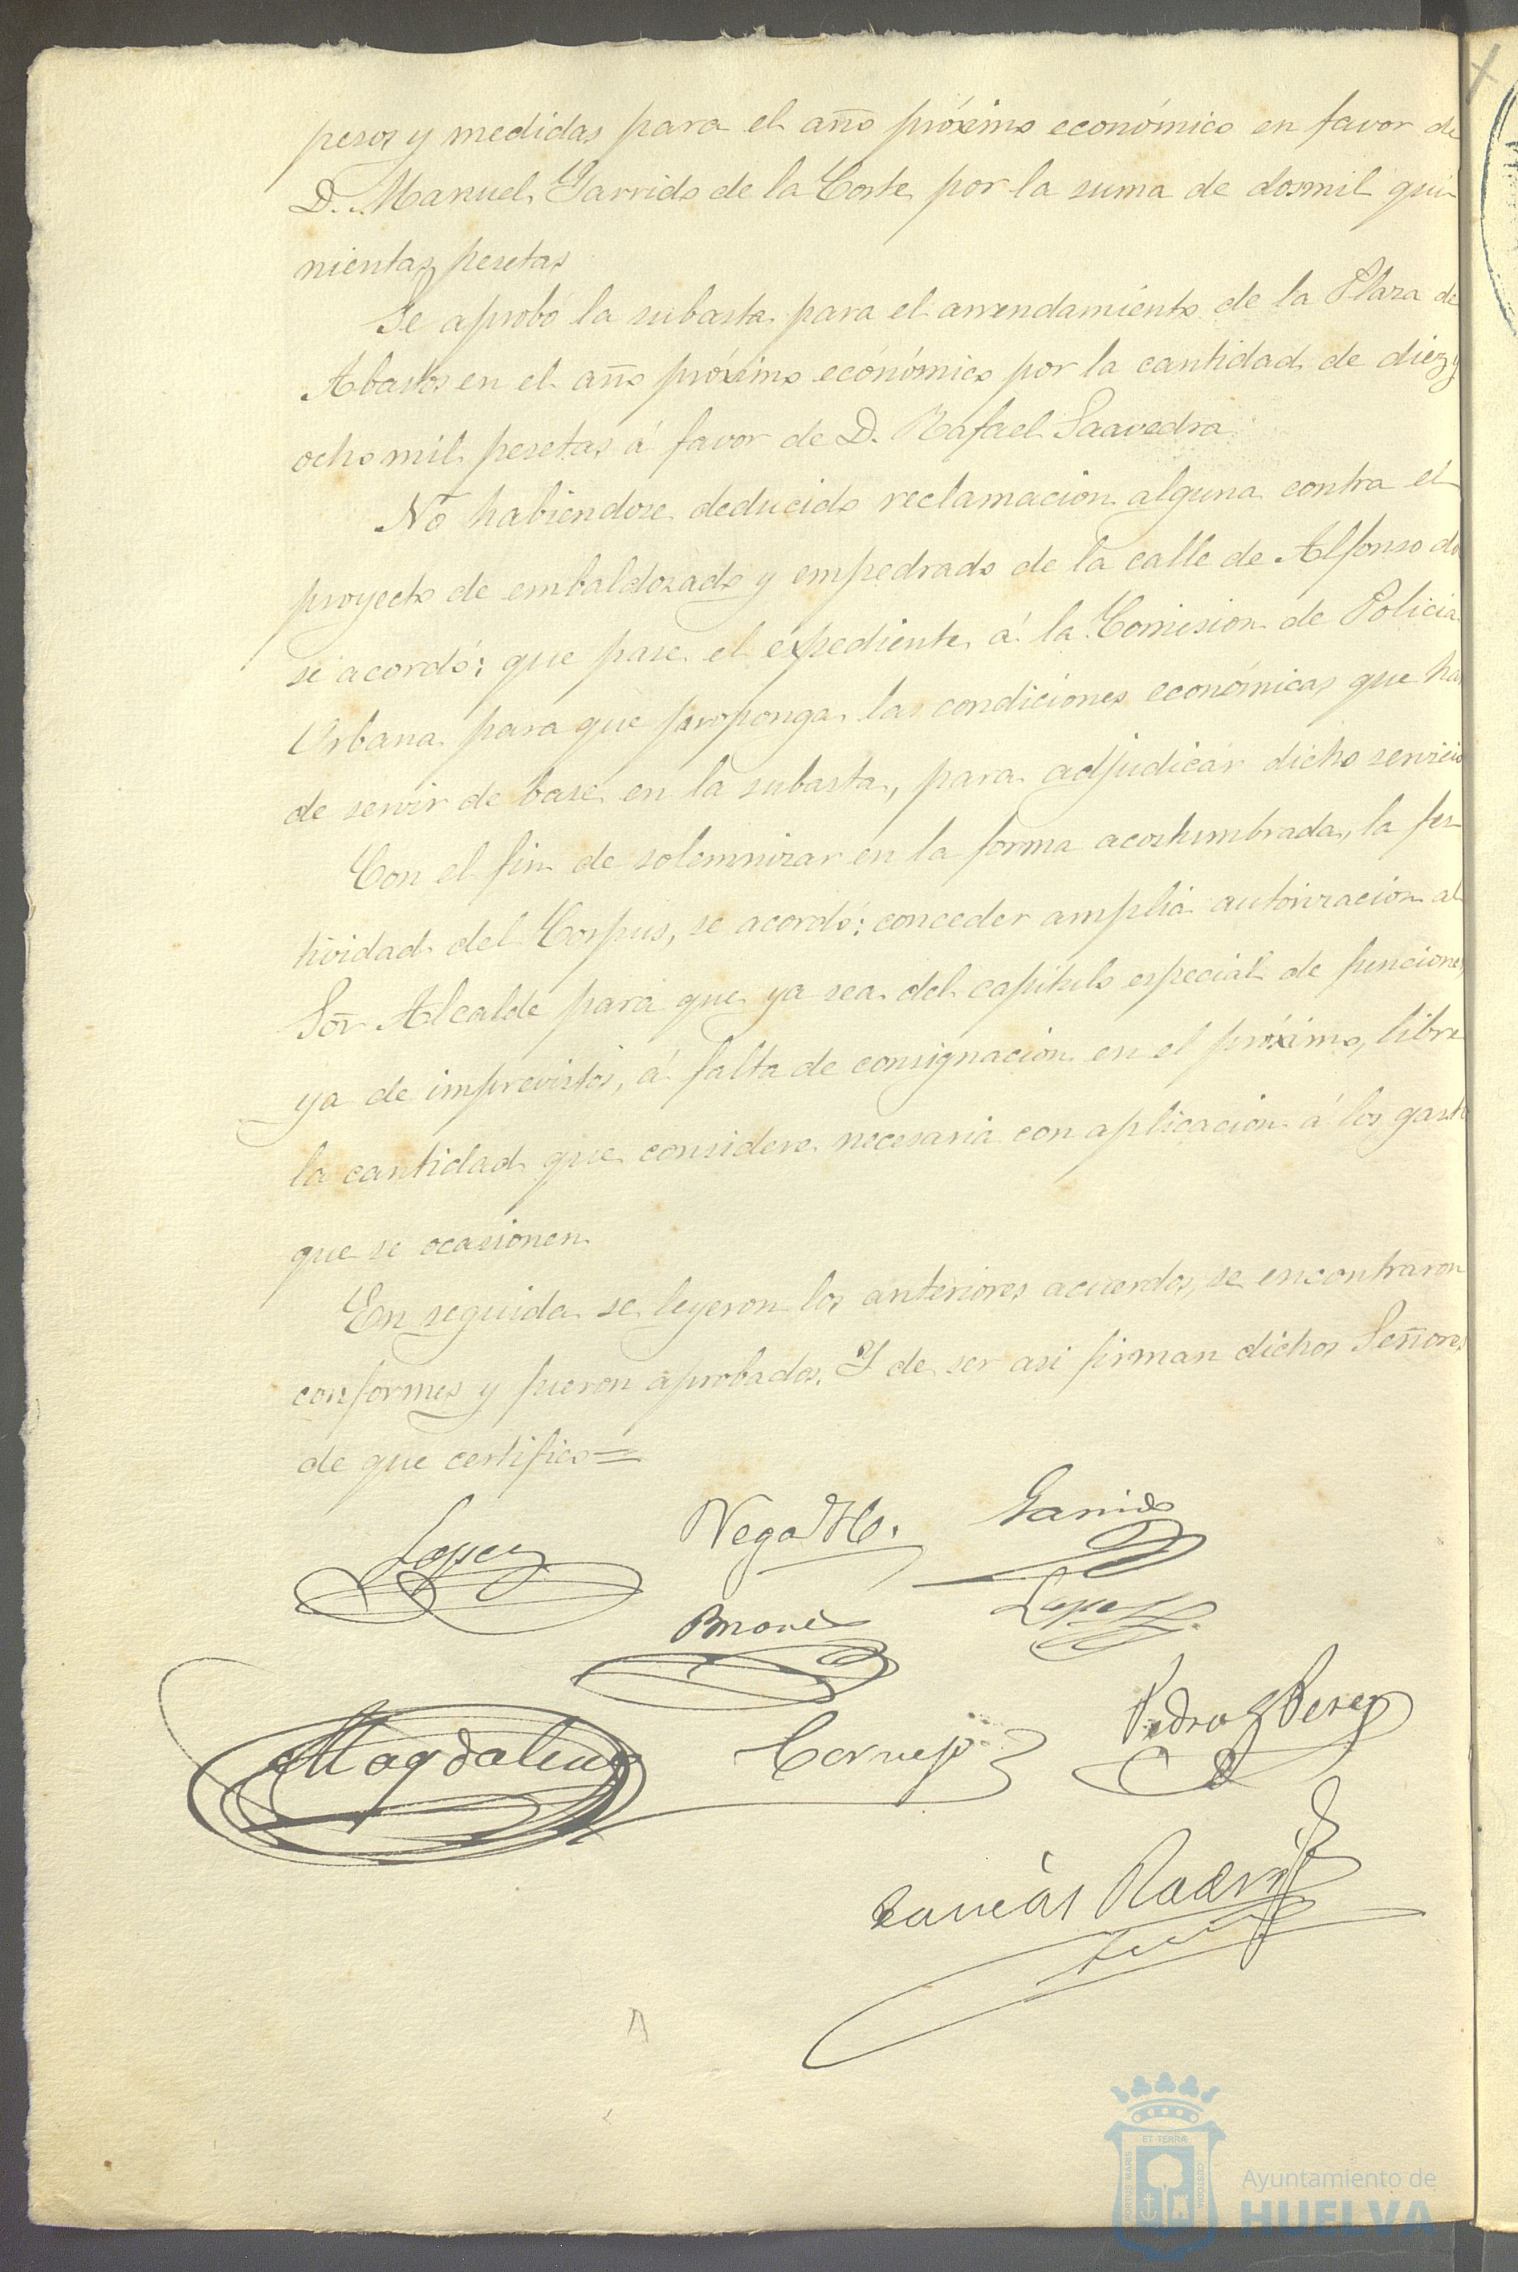 pesos y medidas para el año próximo económico en favor de
D. Manuel Garrido de la Corte por la suma de dosmil qui-
nientas pesetas
Se aprobó la subasta para el arrendamiento de la Plaza de
Abastos en el año próximo económico por la cantidad de diez y
ocho mil pesetas á favor de D. Rafael Saavedra.
No habiendose deducido reclamacion alguna contra el
proyecto de embaldozado y empedrado de la calle de Alfonso do
se acordó: que pase el expediente á la Comision de Policia
Urbana para que proponga las condiciones económicas que ha
de servir de base en la subasta, para adjudicar dicho servicio
Con el fin de solemnizar en la forma acostumbrada, la fes-
tividad del Corpus, se acordó: conceder amplia autorizacion al
Sor Alcalde para que ya sea del capitulo especial de funciones
ya de imprevistos, á falta de consignacion en el próximo, libre
la cantidad que considere necesaria con aplicacion á los gasto
que se ocasionen.
En seguida se leyeron los anteriores acuerdos, se encontraron
conformes y fueron aprobados. Y de ser asi firman dichos Señores
de que certifico=
Lopez Vega Garrido
Lopez
Magdalena Cornejo Pedro Perez
Rodri
ET TERRÆ
PORTUS MARIS
CUSTODIA
Ayuntamiento de
HUELVA